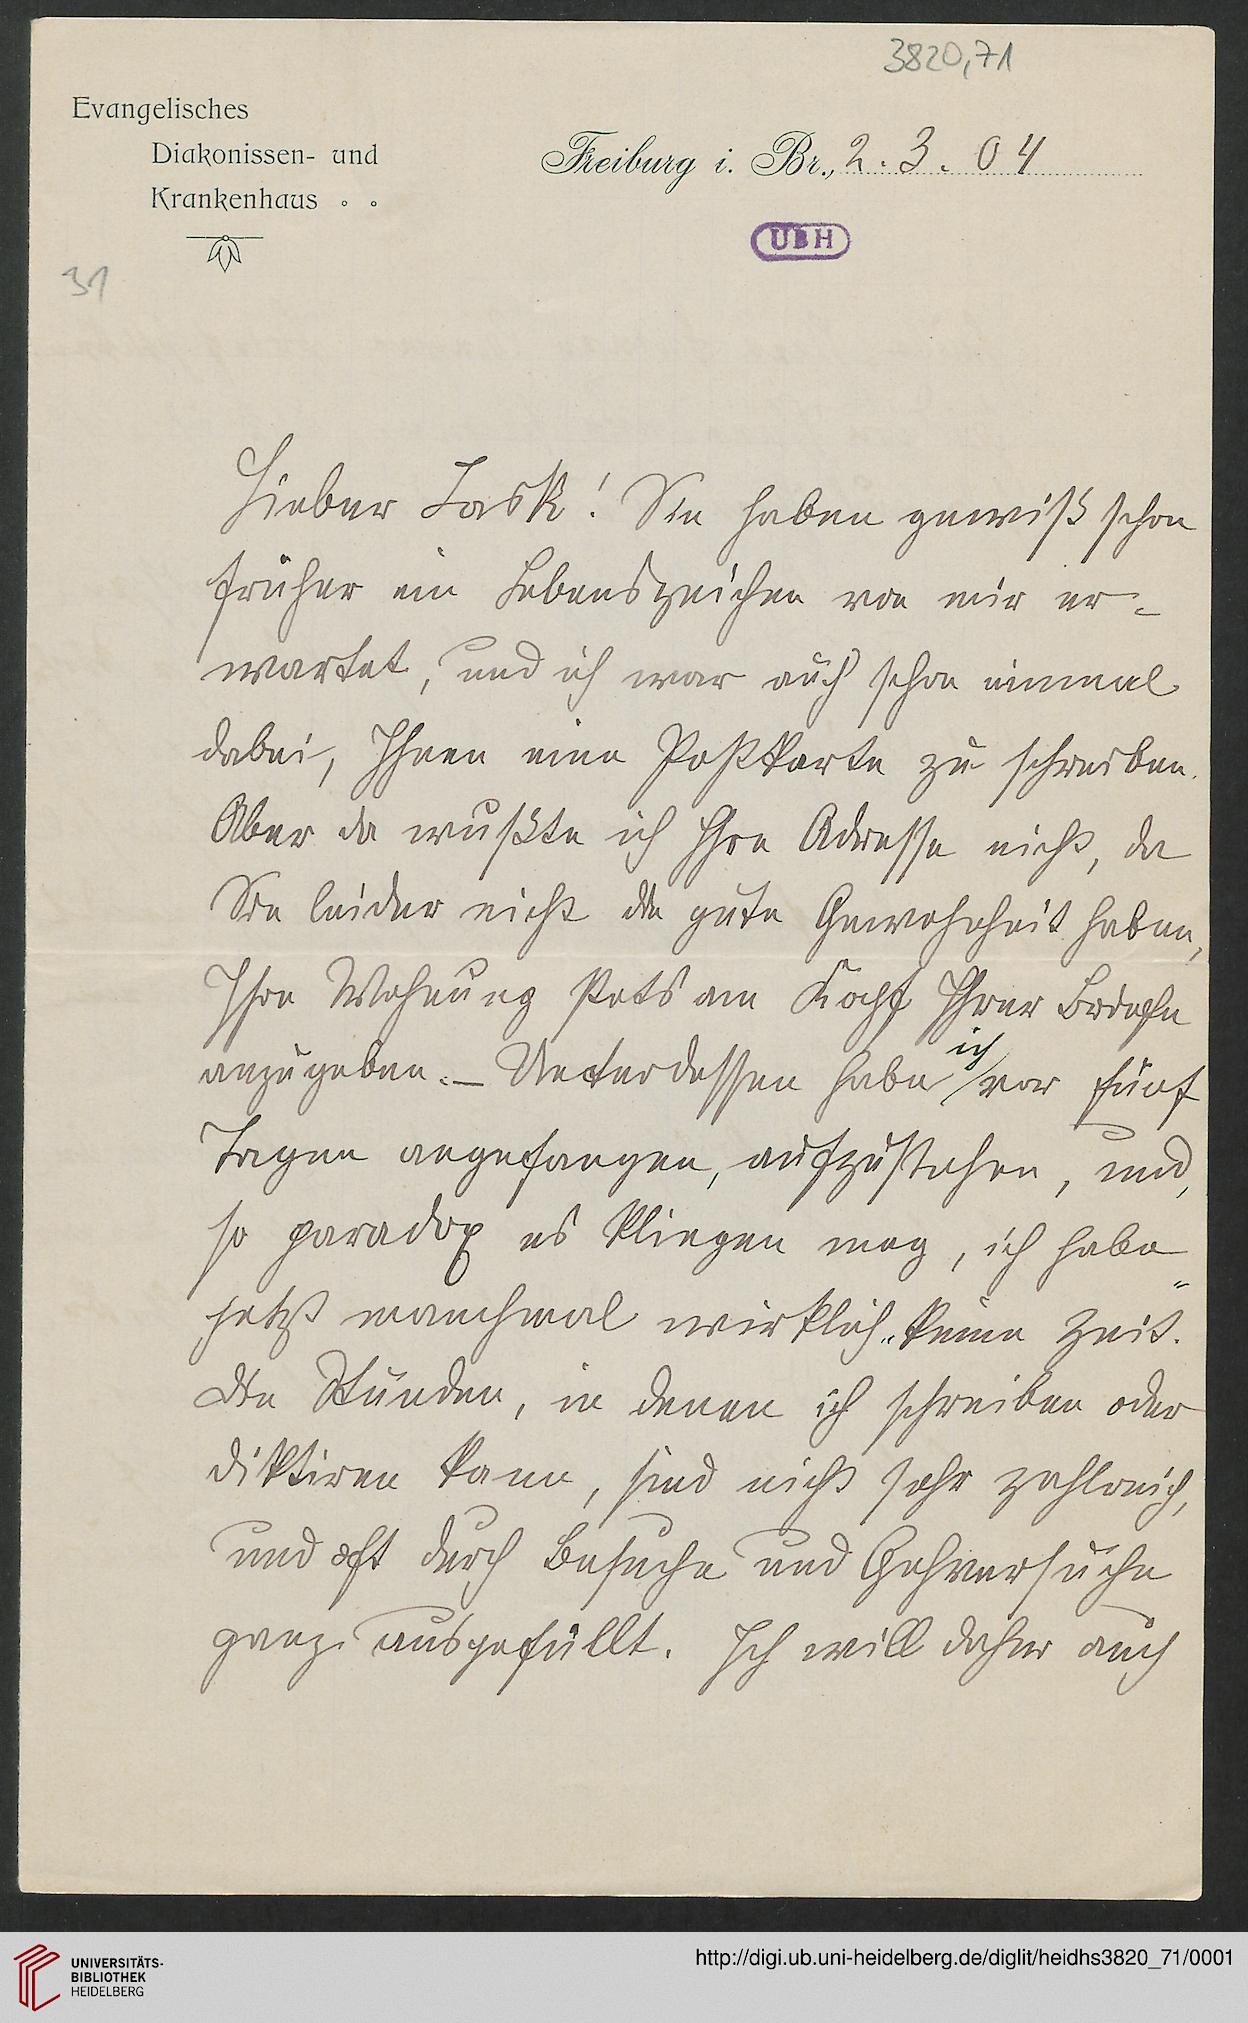 3820,71
Evangelisches
Diakonissen- und
Krankenhaus
Freiburg i. Br., 2. 3. 04
UBH
31
Lieber Lask! Sie haben gewiß schon
früher ein Lebenszeichen von mir er-
wartet, und ich war auch schon einmal
dabei, Ihnen eine Postkarte zu schreiben.
Aber da wußte ich Ihre Adresse nicht, da
Sie leider nicht die gute Gewohnheit haben,
Ihre Wohnung stets am Kopf Ihrer Briefe
anzugeben. – Unterdessen habe ich vor fünf
Tagen angefangen, aufzustehen, und,
so paradox es klingen mag, ich habe
jetzt manchmal wirklich „keine Zeit“.
Die Stunden, in denen ich schreiben oder
diktiren kann, sind nicht sehr zahlreich,
und oft durch Besuche und Gehversuche
ganz ausgefüllt. Ich will daher auch
UNIVERSITÄTS-
BIBLIOTHEK
HEIDELBERG
http://digi.ub.uni-heidelberg.de/diglit/heidhs3820_71/0001